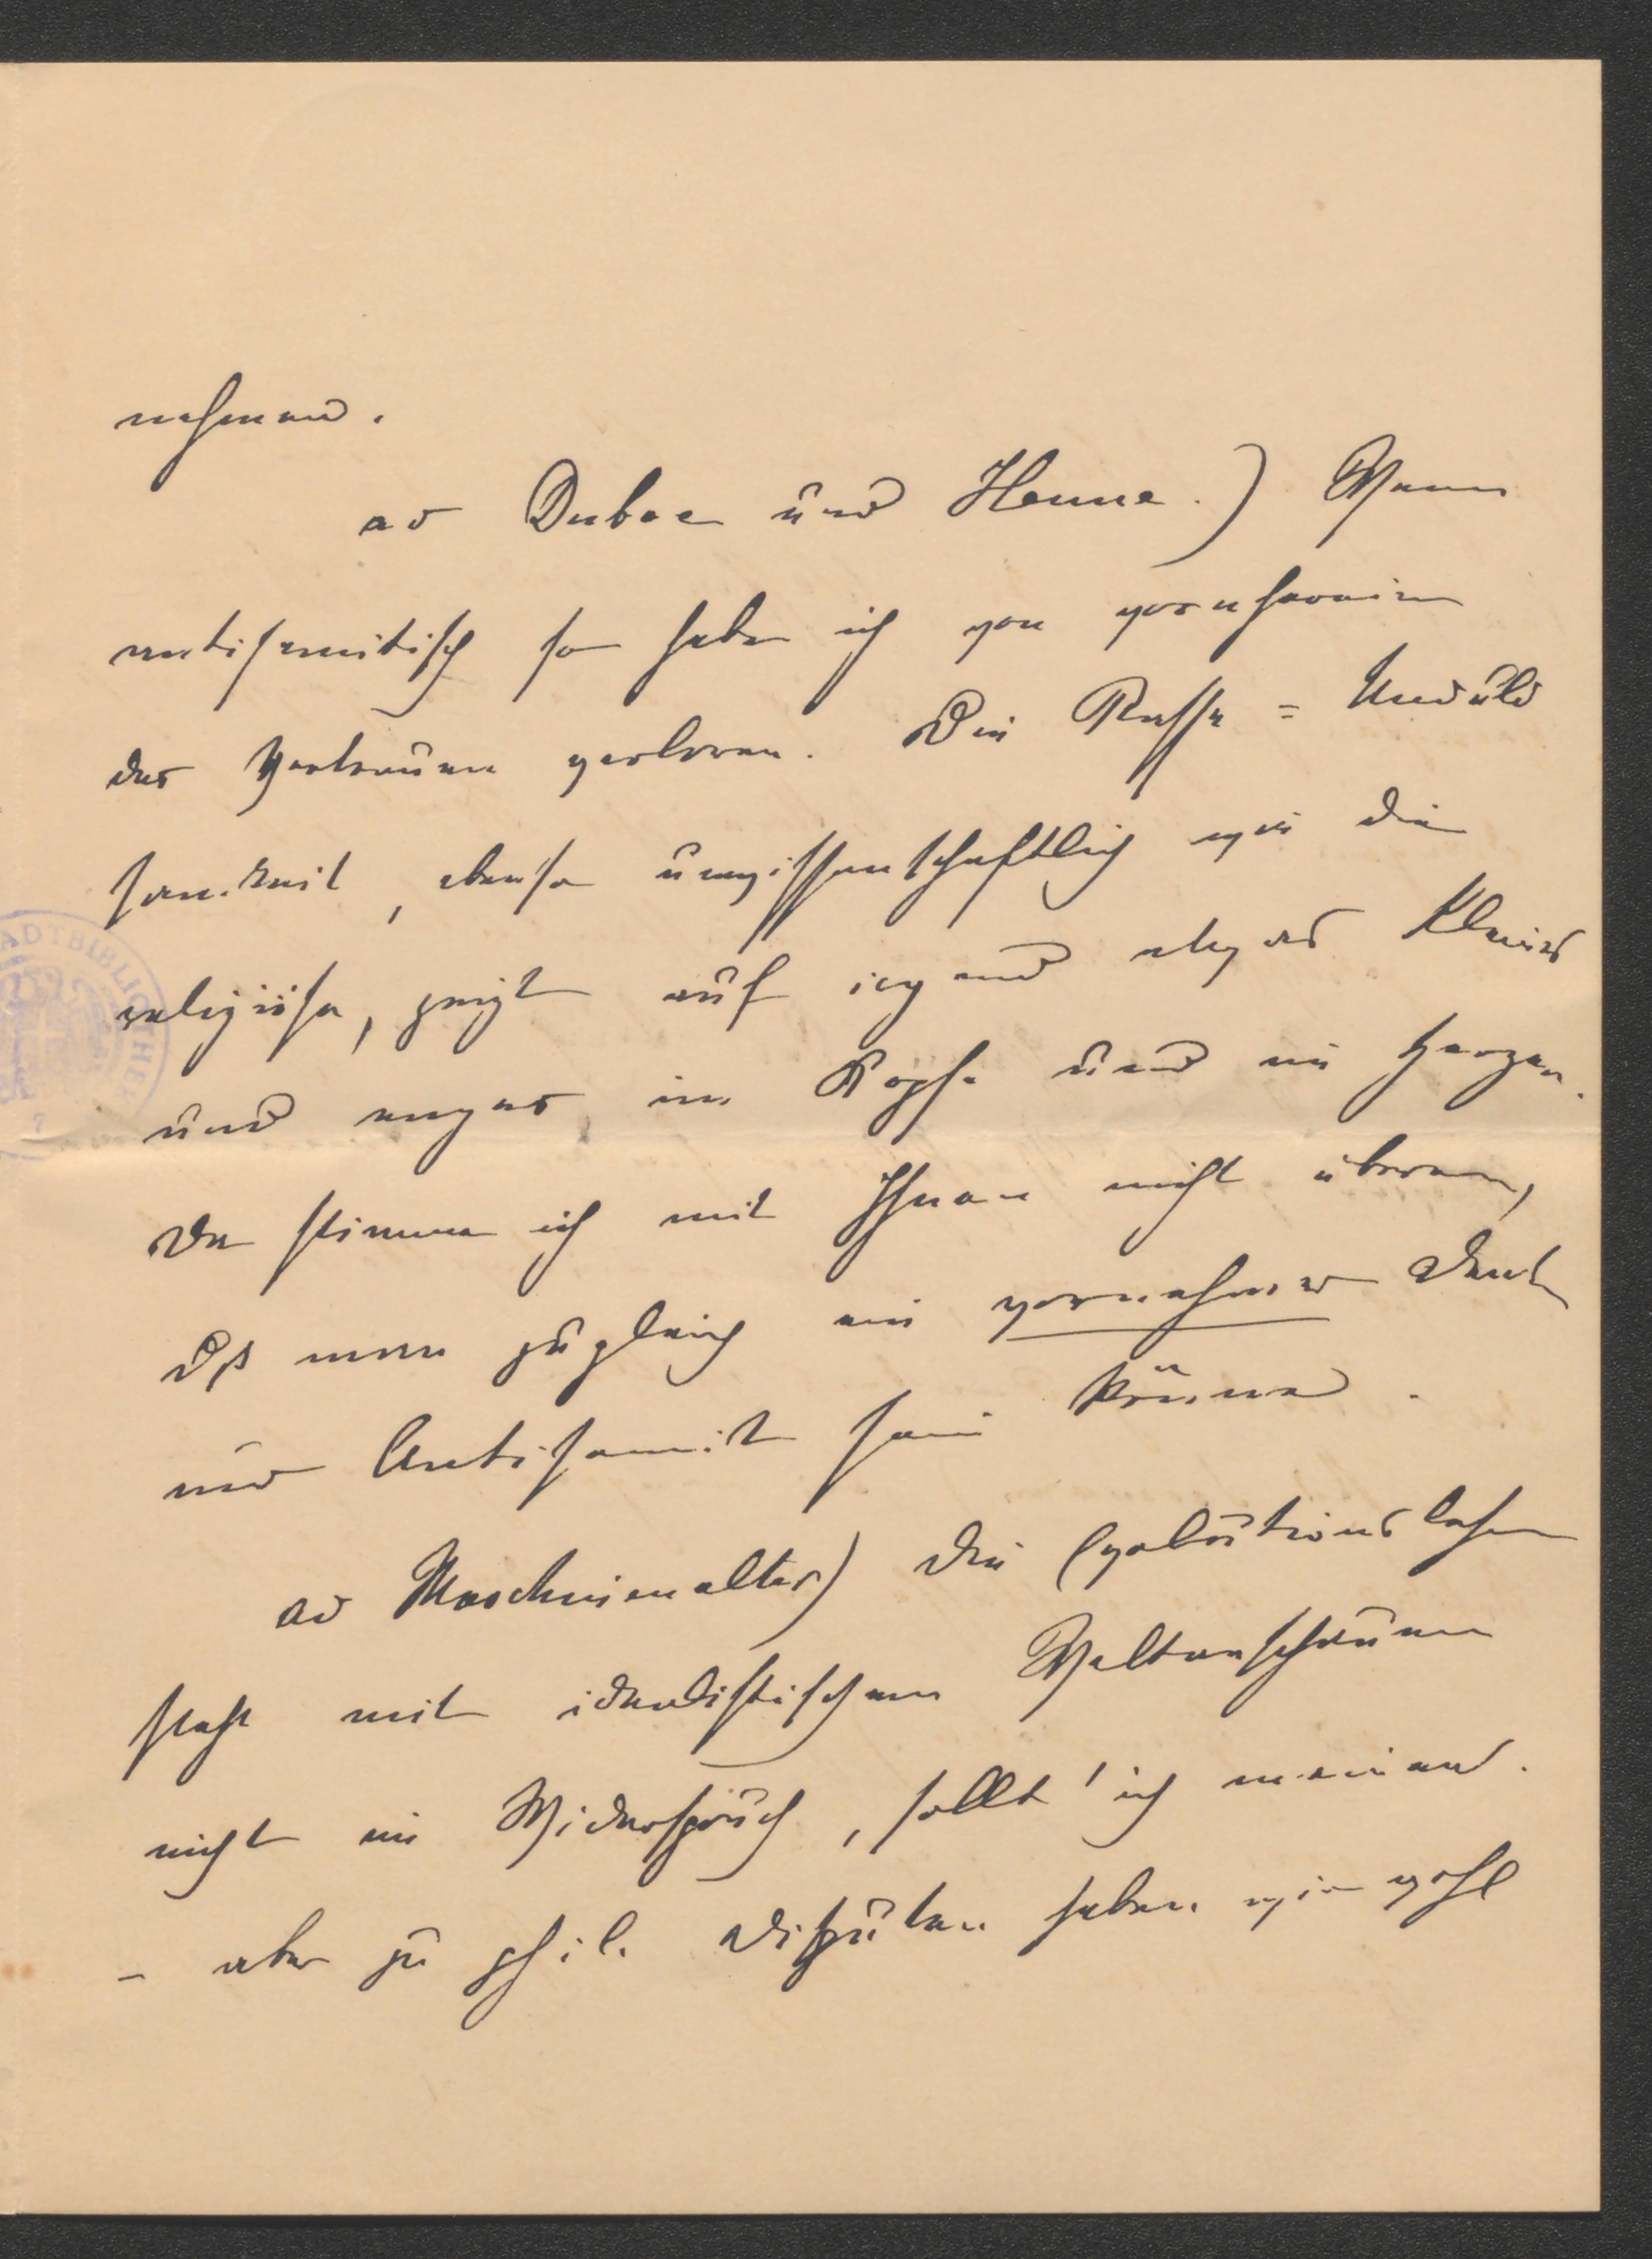 nehmend.
ad Duboc und Henne.) Wenn
antisemitisch so habe ich von vornherein
das Vertrauen verloren. Die Rasse = Unduld
samkeit, ebenso unwissenschaftlich wie die
religiöse, zeigt auf irgend etwas Kleines
und enges im Kopfe und im Herzen.
Da stimme ich mit Ihnen nicht überein,
dß man zugleich ein vornehmer Denk
und Antisemit sein könne.
ad Maschinenalter) die Evolutionslehre
steht mit idealistischem Weltanschauen
nicht im Widerspruch, sollt' ich meinen.
- aber zu phil. Disputen haben wir wohl
STADTBIBLIOTHEK